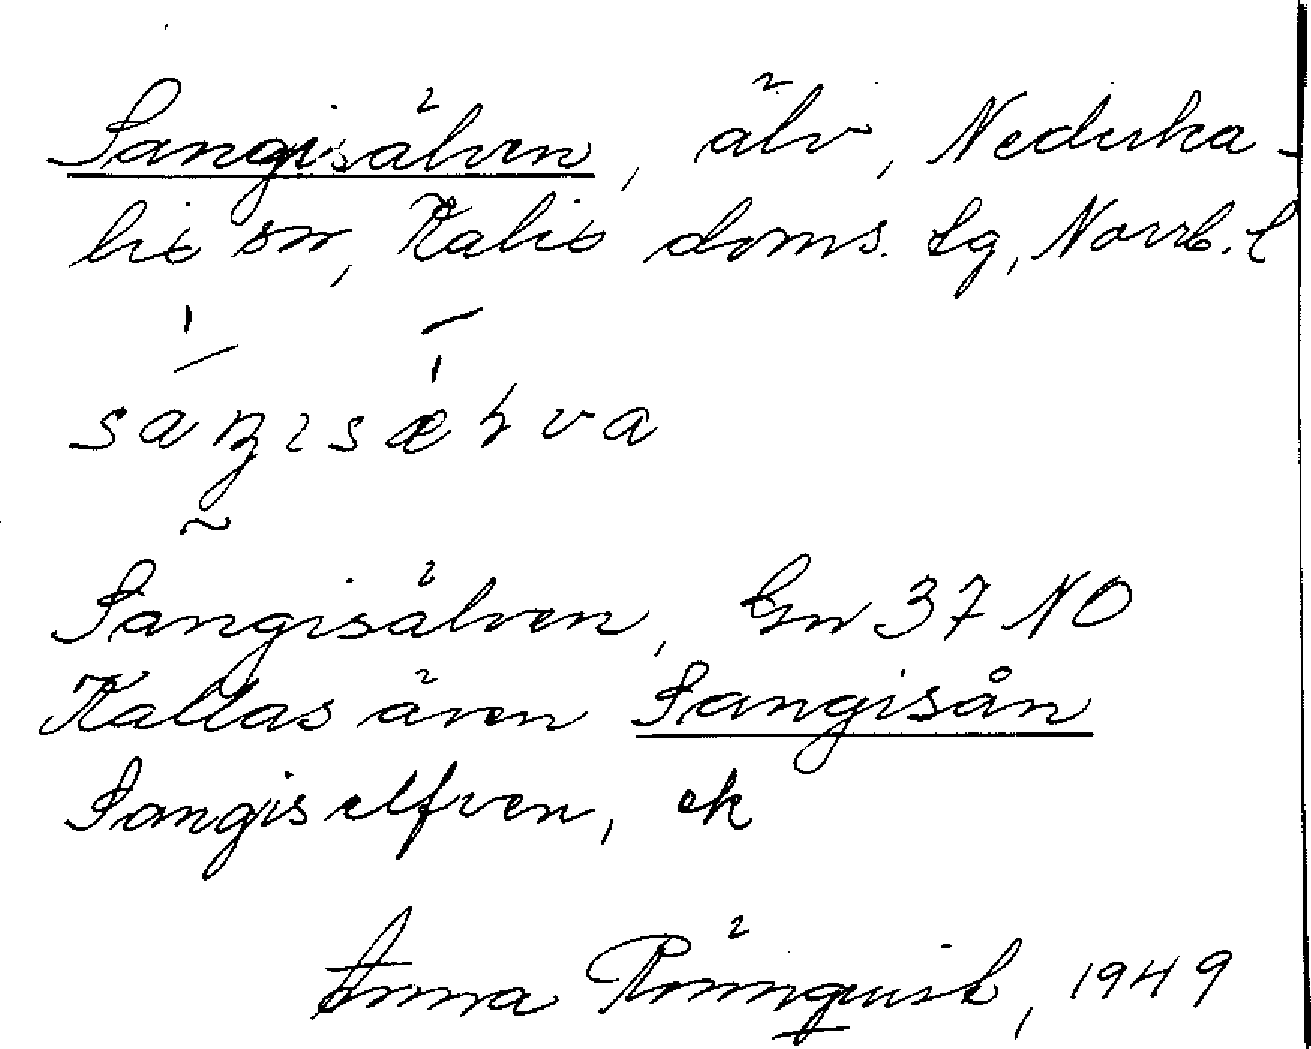 Sangisälven, älv, Nederka-
lix sn, Kalix doms. lg, Norrb. l
Sangisälven, Gn 37 NO
Kallas även Sangisån
Sangiselfven, ek
Anna Rönnquist, 1949